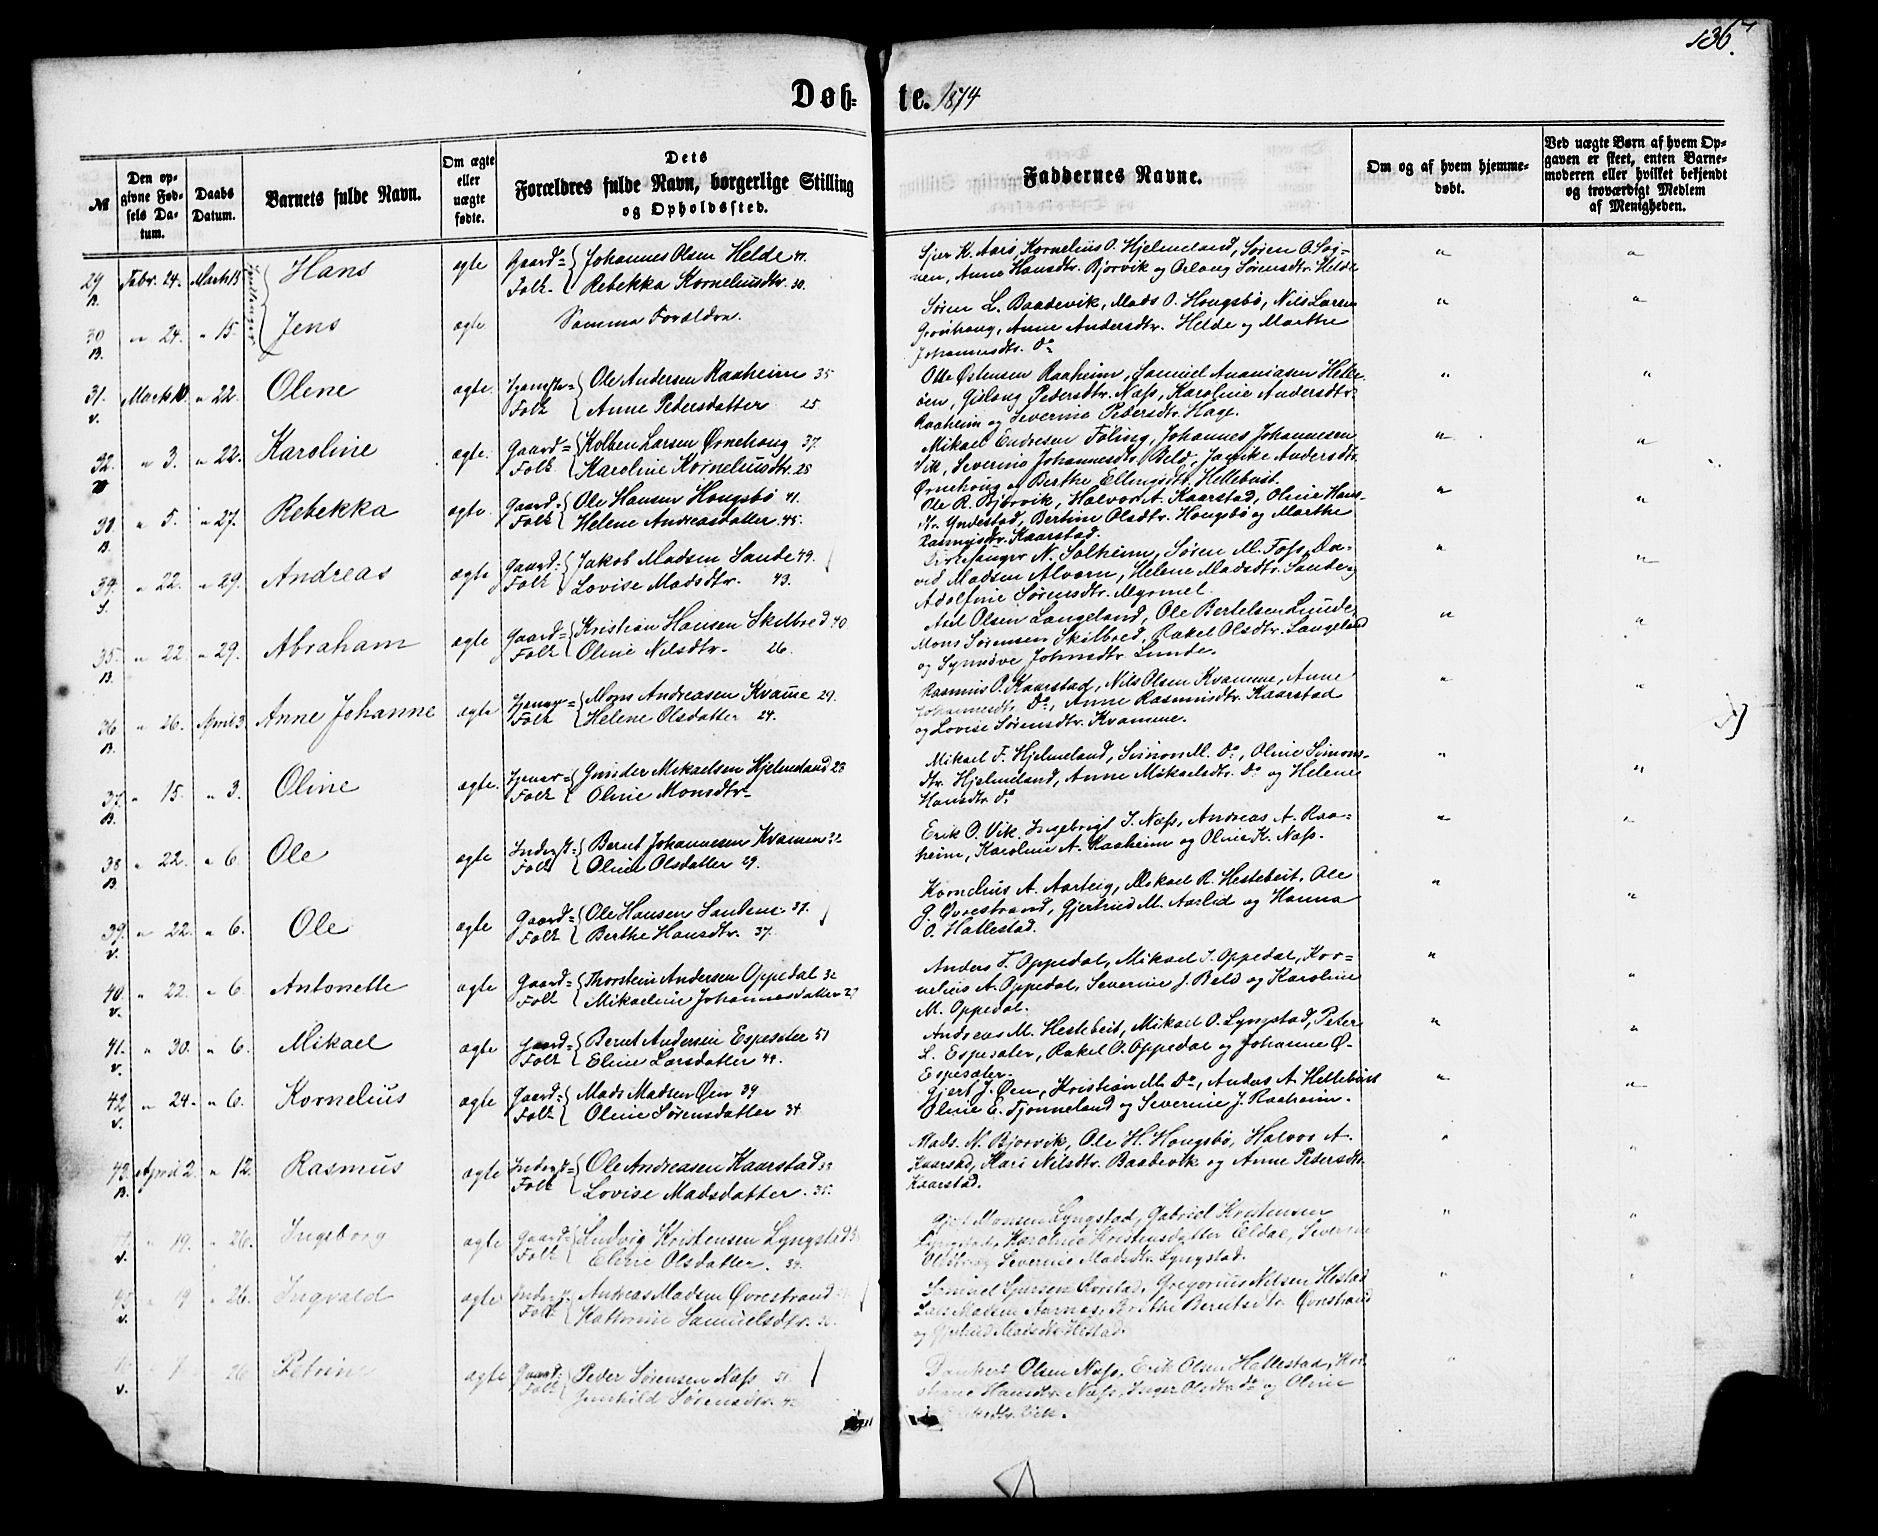 136.
Døb= te. 1874
№
Den op-
givne Fød-
sels Da-
tum.
Daabs
Datum.
Barnets fulde Navn.
Om ægte
eller
uægte
fødte.
Dets
Forældres fulde Navn, borgerlige Stilling
og Opholdssted.
Faddernes Navne.
Om og af hvem hjemme-
døbt.
Ved uægte Børn af hvem Op-
gaven er skeet, enten Barne-
moderen eller hvilket bekjendt
og troværdigt Medlem
af Menigheden.
29 Febr. 24. Marts 15 Hans ægte Gaard= Johannes Olsen Helde 41.
B. Folk Rebekka Korneliusdtr. 30.
Sjur K. Aarø, Kornelius O. Hjelmeland, Søren O. Sog-
nen, Anne Hansdtr. Bjorvik og Oslaug Sørensdtr. Helde
30 " 24. " 15. Jens ægte Samme Forældre.
B.
Søren L. Baadevik, Mads O. Hougsbø, Nils Larsen
Grønhoug, Anne Andersdtr. Helde og Marthe
Johannesdtr. Do
31. Marts 10. " 22. Olene ægte. Ole Andersen Raaheim 35
v. Folk Anne Pedersdatter 25.
Otte Østensen Raaheim, Samuel Ananiasen Helle-
øen, Gislaug Pedersdtr. Næss, Karoline Andersdtr.
Raaheim og Severine Pedersdtr. Hage.
32. " 3. " 22. Karoline ægte. Gaard= Kolben Larsen Ørnehoug 37.
Folk Karoline Korneliusdtr. 25
Mikael Endresen Føling, Johannes Johannesen
Vik, Severine Johannesdtr. Beld, Andersdtr.
Ørnehoug og Berthe Ellingsdtr. Hellebust.
33 " 5. " 27. Rebekka ægte. Gaard= Ole Hansen Hougsbø 41.
B. Folk Helene Andreasdatter 45.
Ole R. Bjørvik, Halvor A. Kaarstad, Oline Hans-
dtr. Yndestad, Bertine Olsdtr. Hougsbø og Marthe
Rasmusdtr. Kaarstad.
34. " 22. " 29. Andreas ægte Gaard= Jakob Madsen Sande 49.
S. Folk Lovise Madsdtr. 43.
Kirkesanger N. Solheim, Søren M. Foss, Da-
vid Madsen Alværn, Helene Madsdtr. Sande og
Adolfine Sørensdtr. Myrmel.
35. " 22. " 29. Abraham ægte Gaard= Kristian Hansen Skilbred 40
B. Folk Oline Nilsdtr. 26.
Anl Olsen Langeland, Ole Bertelsen Lunde,
Mons Sørensen Skilbred, Rakel Olsdtr. Langeland
og Synnøve Johnsdtr. Lunde.
36 " 26. April 3. Anne Johanne ægte Mons Andreasen Kvamme 29.
B. Folk Helene Olsdatter 24.
Rasmus O. Kaarstad, Nils Olsen Kvamme, Anne
Johannesdtr. Do, Anne Rasmusdtr. Kaarstad
og Lovise Sørensdtr. Kvamme.
37. " 15. " 3. Oline ægte. Gunder Mikaelsen Hjelmeland 23
B. Folk Oline Monsdtr.
Mikael F. Hjelmeland, Simon M. Do, Oline Simons-
dtr. Hjelmeland, Anne Mikaelsdtr. Do og Helene
Hansdtr. do
38 " 22. " 6. Ole ægte Inderst= Bernt Johannesen Kvamme 32
B. Folk Oline Olsdatter 29.
Erik O. Vik, Ingebrigt S. Næss, Andreas A. Raa-
heim, Karoline A. Raaheim og Oline K. Næss.
39. " 22. " 6. Ole ægte Gaard= Ole Hansen Sandene 37.
v. Folk Berthe Hansdtr. 37.
Kornelius A. Aarteig, Mikael R. Hestebeit, Ole
G. Øvrestrand, Gjertrud M. Aarlid og Hanna
O. Hallestad.
40. " 22. " 6. Antonette ægte Gaard= Thorstein Andersen Oppedal 32
v. Folk Mikaeline Johannesdatter 27
Anders T. Oppedal, Mikael I. Oppedal, Kor-
nelius A. Oppedal, Severine J. Beld og Karoline
M. Oppedal.
41. " 30. " 6. Mikael ægte Gaard= Bernt Andersen Espesæter 51
v. Folk Eline Larsdatter 44.
Andreas M. Hestebeit, Mikael O. Lyngstad, Peter
L. Espesæter, Rakel O. Oppedal og Johanne Ø.
Espesæter.
42 " 24. " 6. Kornelius ægte Gaard= Mads Madsen Øen 39
v. Folk Oline Sørensdatter 34
Gjert J. Øen, Kristian M. Do, Anders A. Hellebust
Oline E. Tjønneland og Severine J. Raaheim.
43. April 2. " 12. Rasmus ægte Inderst= Ole Andreasen Kaarstad 33
B. Folk Lovise Madsdatter. 35.
Mads. N. Bjorvik, Ole H. Hougsbø, Halvor A.
Kaarstad, Kari Nilsdtr. Baadevik og Anne Pedersdtr.
Kaarstad.
" 19. " 26. Ingeborg ægte Gaard= Ludvig Kristensen Lyngstad
v. Folk Eline Olsdatter. 34.
Monsen Lyngstad, Gabriel Kristensen
Lyngstad, Karoline Kristensdatter Eldal, Severine
Olsdtr. og Severine Madsdtr. Lyngstad.
" 19 " 26. Ingvald ægte Inderst= Andreas Madsen Øvrestrand
v. Folk Kathrine Samuelsdtr.
Samuel Sjursen Rørstad, Gregorius Nilsen Hestad
Lars Madsen Aarnæs, Berthe Berntsdtr. Øvrestrand
og Gjertrud Madsdtr. Hestad.
26 Petrine ægte Gaard= Peder Sørensen Næss 51.
v. Folk Gunhild Sørensdtr. 42
Dankert Olsen Næss, Erik Olsen Hallestad,
Hansdtr. Næss, Inger Olsdtr. do og Oline
Vik.